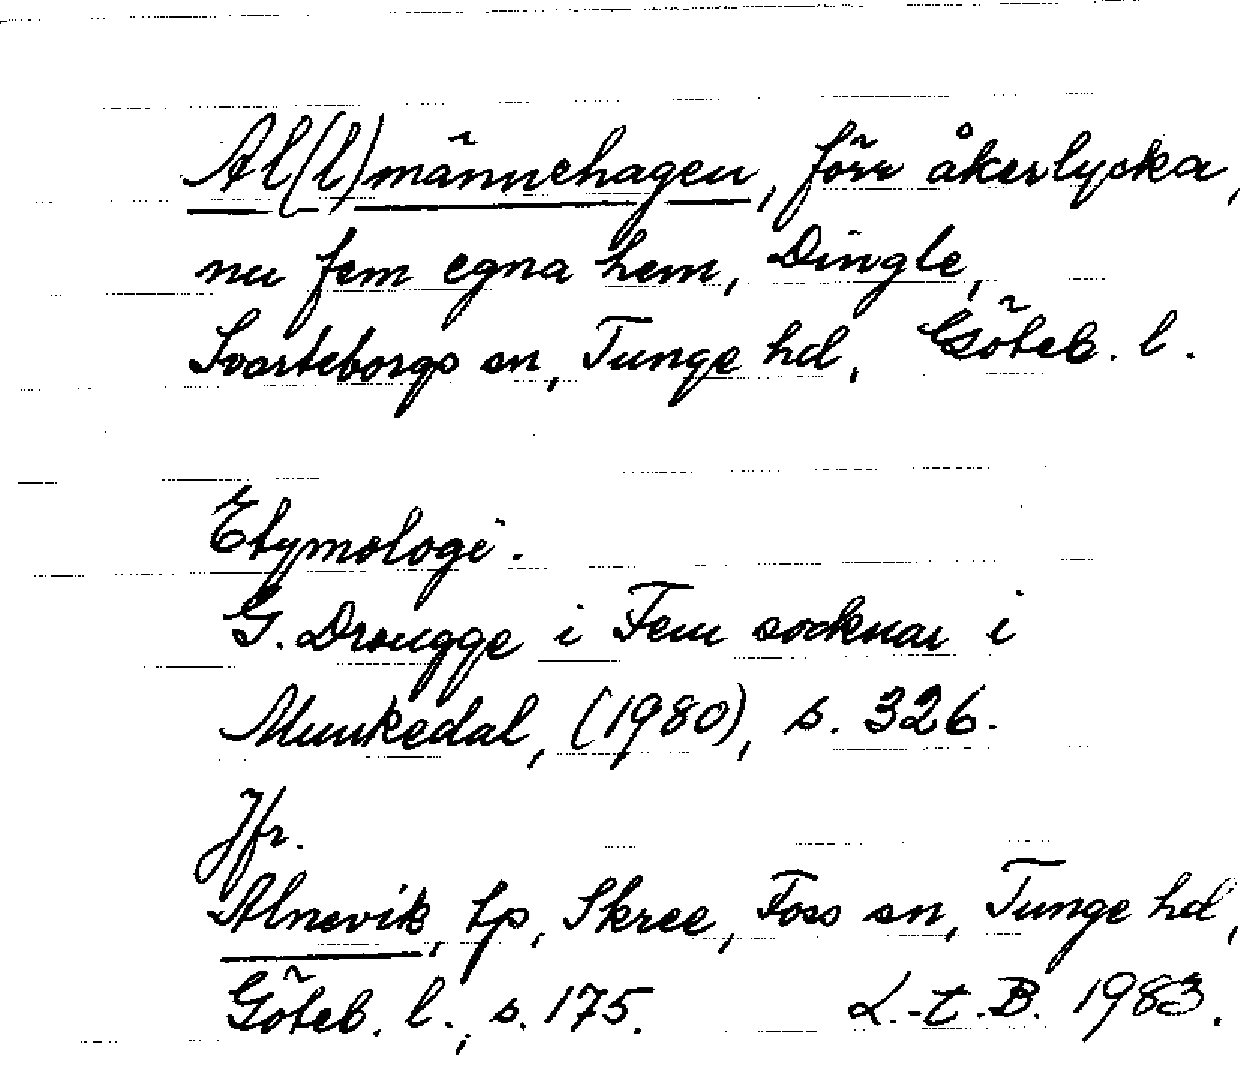 Al(l)männehagen, förr åkerlycka,
nu fem egna hem, Dingle,
Svarteborgs sn, Tunge hd, Göteb. l.
Etymologi.
G. Drougge i Fem socknar i
Munkedal, (1980), s. 326.
Jfr.
Alnevik, tp, Skree, Foss sn, Tunge hd,
Göteb. l., s. 175. L.-t.-B. 1983.